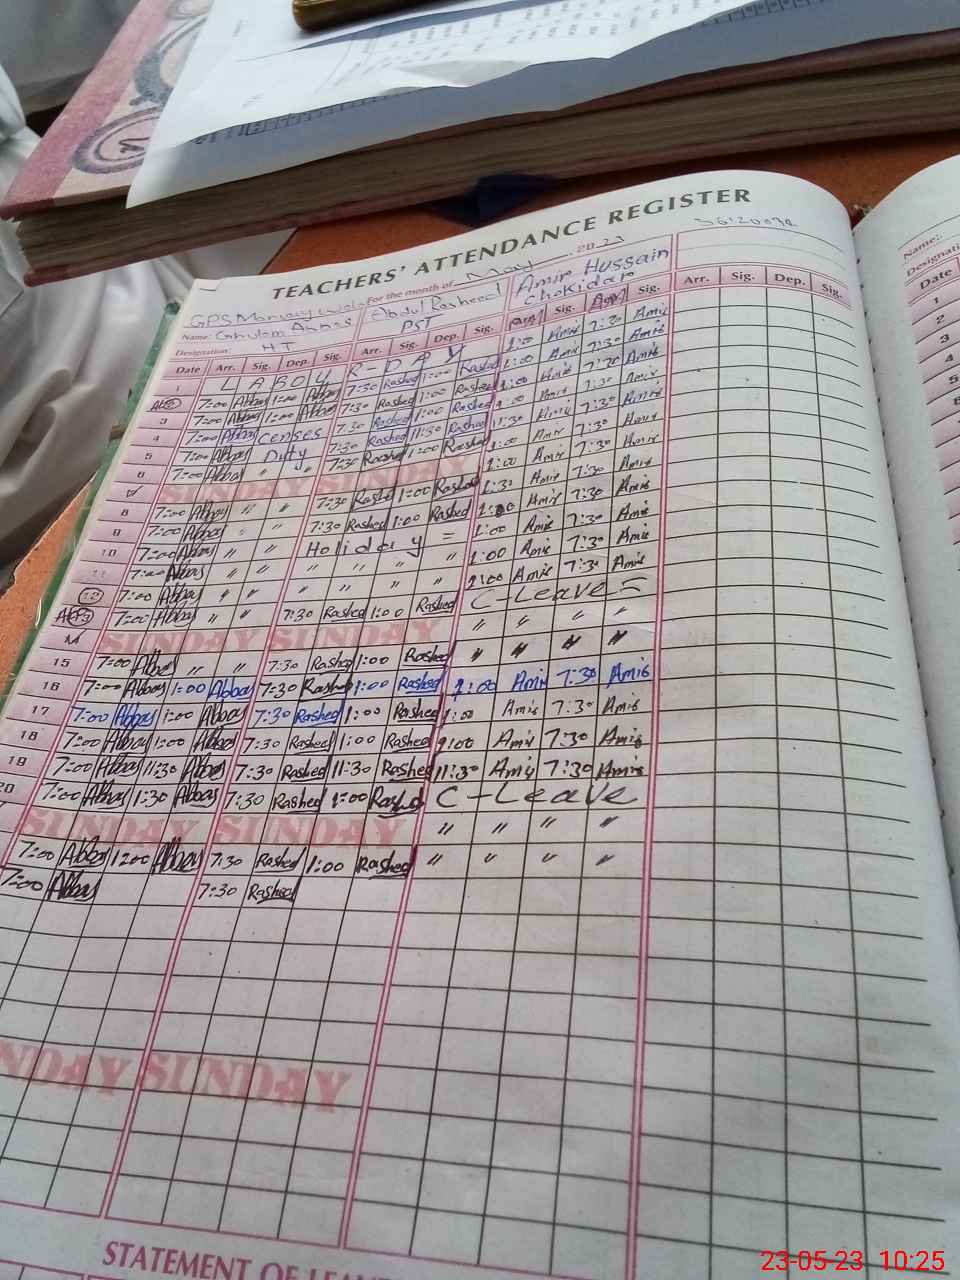 TEACHERS' ATTENDANCE REGISTER
For the month of May 2023
Name: Ghulam Abbas Abdul Rasheed Amir Hussain
Designation: H T PST Chokidar
Date Arr. Sig. Dep. Sig. Arr. Sig. Dep. Sig. Sig. Arr. Sig. Dep. Sig.
1 L A B O U R - D A Y 1:00 Amir 7:30 Amir
7:00 Abbas 1:00 Abbas 7:30 Rashed 1:00 Rashed 1:00 Amir 7:30 Amir
3 7:00 Abbas 1:00 Abbas 7:30 Rashed 1:00 Rashed 1:00 Amir 7:30 Amir
4 7:00 Abbas Censes 7:30 Rashed 1:00 Rashed 1:00 Amir 7:30 Amir
5 7:00 Abbas Duty 7:30 Rashed 11:30 Rashed 11:30 Amir 7:30 Amir
6 7:00 Abbas " " 7:30 Rashed 1:00 Rashed 1:00 Amir 7:30 Amir
SUNDAY SUNDAY 1:30 Amir 7:30 Amir
8 7:00 Abbas " " 7:30 Rashed 1:00 Rashed 1:00 Amir 7:30 Amir
9 7:00 Abbas " " 7:30 Rashed 1:00 Rashed 1:00 Amir 7:30 Amir
10 7:00 Abbas " " Holiday = 1:00 Amir 7:30 Amir
11 7:00 Abbas " " " " " " 1:00 Amir 7:30 Amir
12 7:00 Abbas " " " " " " C-Leave =
7:00 Abbas " " 7:30 Rashed 1:00 Rashed " " " "
SUNDAY SUNDAY " " " "
15 7:00 Abbas " " 7:30 Rashed 1:00 Rashed
16 7:00 Abbas 1:00 Abbas 7:30 Rashed 1:00 Rashed 1:00 Amir 7:30 Amir
17 7:00 Abbas 1:00 Abbas 7:30 Rashed 1:00 Rashed 1:00 Amir 7:30 Amir
18 7:00 Abbas 1:00 Abbas 7:30 Rashed 1:00 Rashed 1:00 Amir 7:30 Amir
19 7:00 Abbas 11:30 Abbas 7:30 Rashed 11:30 Rashed 11:30 Amir 7:30 Amir
20 7:00 Abbas 1:30 Abbas 7:30 Rashed 1:00 Rashed C-Leave
SUNDAY SUNDAY " " " "
7:00 Abbas 1:00 Abbas 7:30 Rashed 1:00 Rashed " " " "
7:00 Abbas 7:30 Rashed
SUNDAY SUNDAY
STATEMENT OF
Name:
Date
1
2
3
4
5
23-05-23 10:25